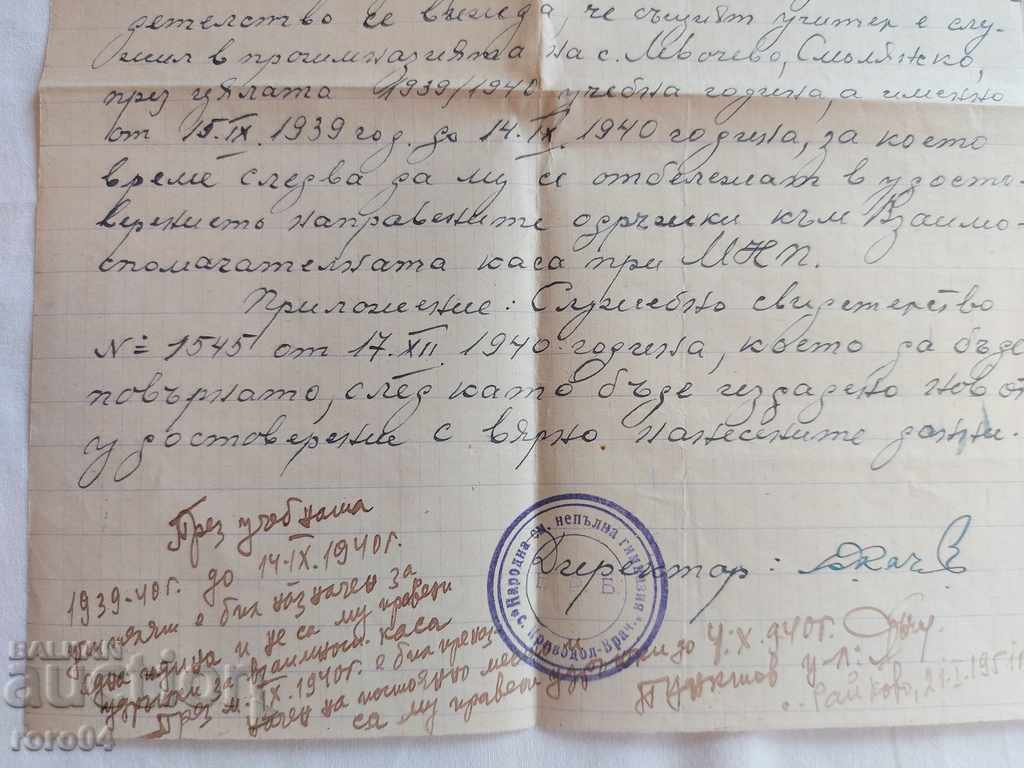 детелство се вижда, че същият учител е слу-
жил в прогимназията на с. Левочево, Смолянско,
през цялата 1939/1940 учебна година, а именно
от 15.IX.1939 год. до 14.IX.1940 година, за което
време следва да му се отбележат в удосто-
верението направените одръжки към Взаимо-
спомагателната каса при МНП.
Приложение: Служебно свидетелство
№ 1545 от 17.XII.1940 година, което да бъде
повърнато, след като бъде издадено ново
удостоверение с вярно нанесените данни.
Директор:
Народна см. непълна гимназия
с. Криводол-Врач.
През учебната
1939-40г. до 14.IX.1940г.
учителят е бил назначен за
една година и не са му правени
удръжки за взаимносп. каса
През м. IX.1940г. е бил
начен на постоянно
са му правени удръжки до 4.X.940г.
Райково, 21.I.1951г.
BALKAN
auction
roro04